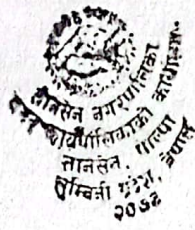 तानसेन नगरपालिका
नगर कार्यपालिकाको कार्यालय
तानसेन, पाल्पा
लुम्बिनी प्रदेश, नेपाल
२०७४